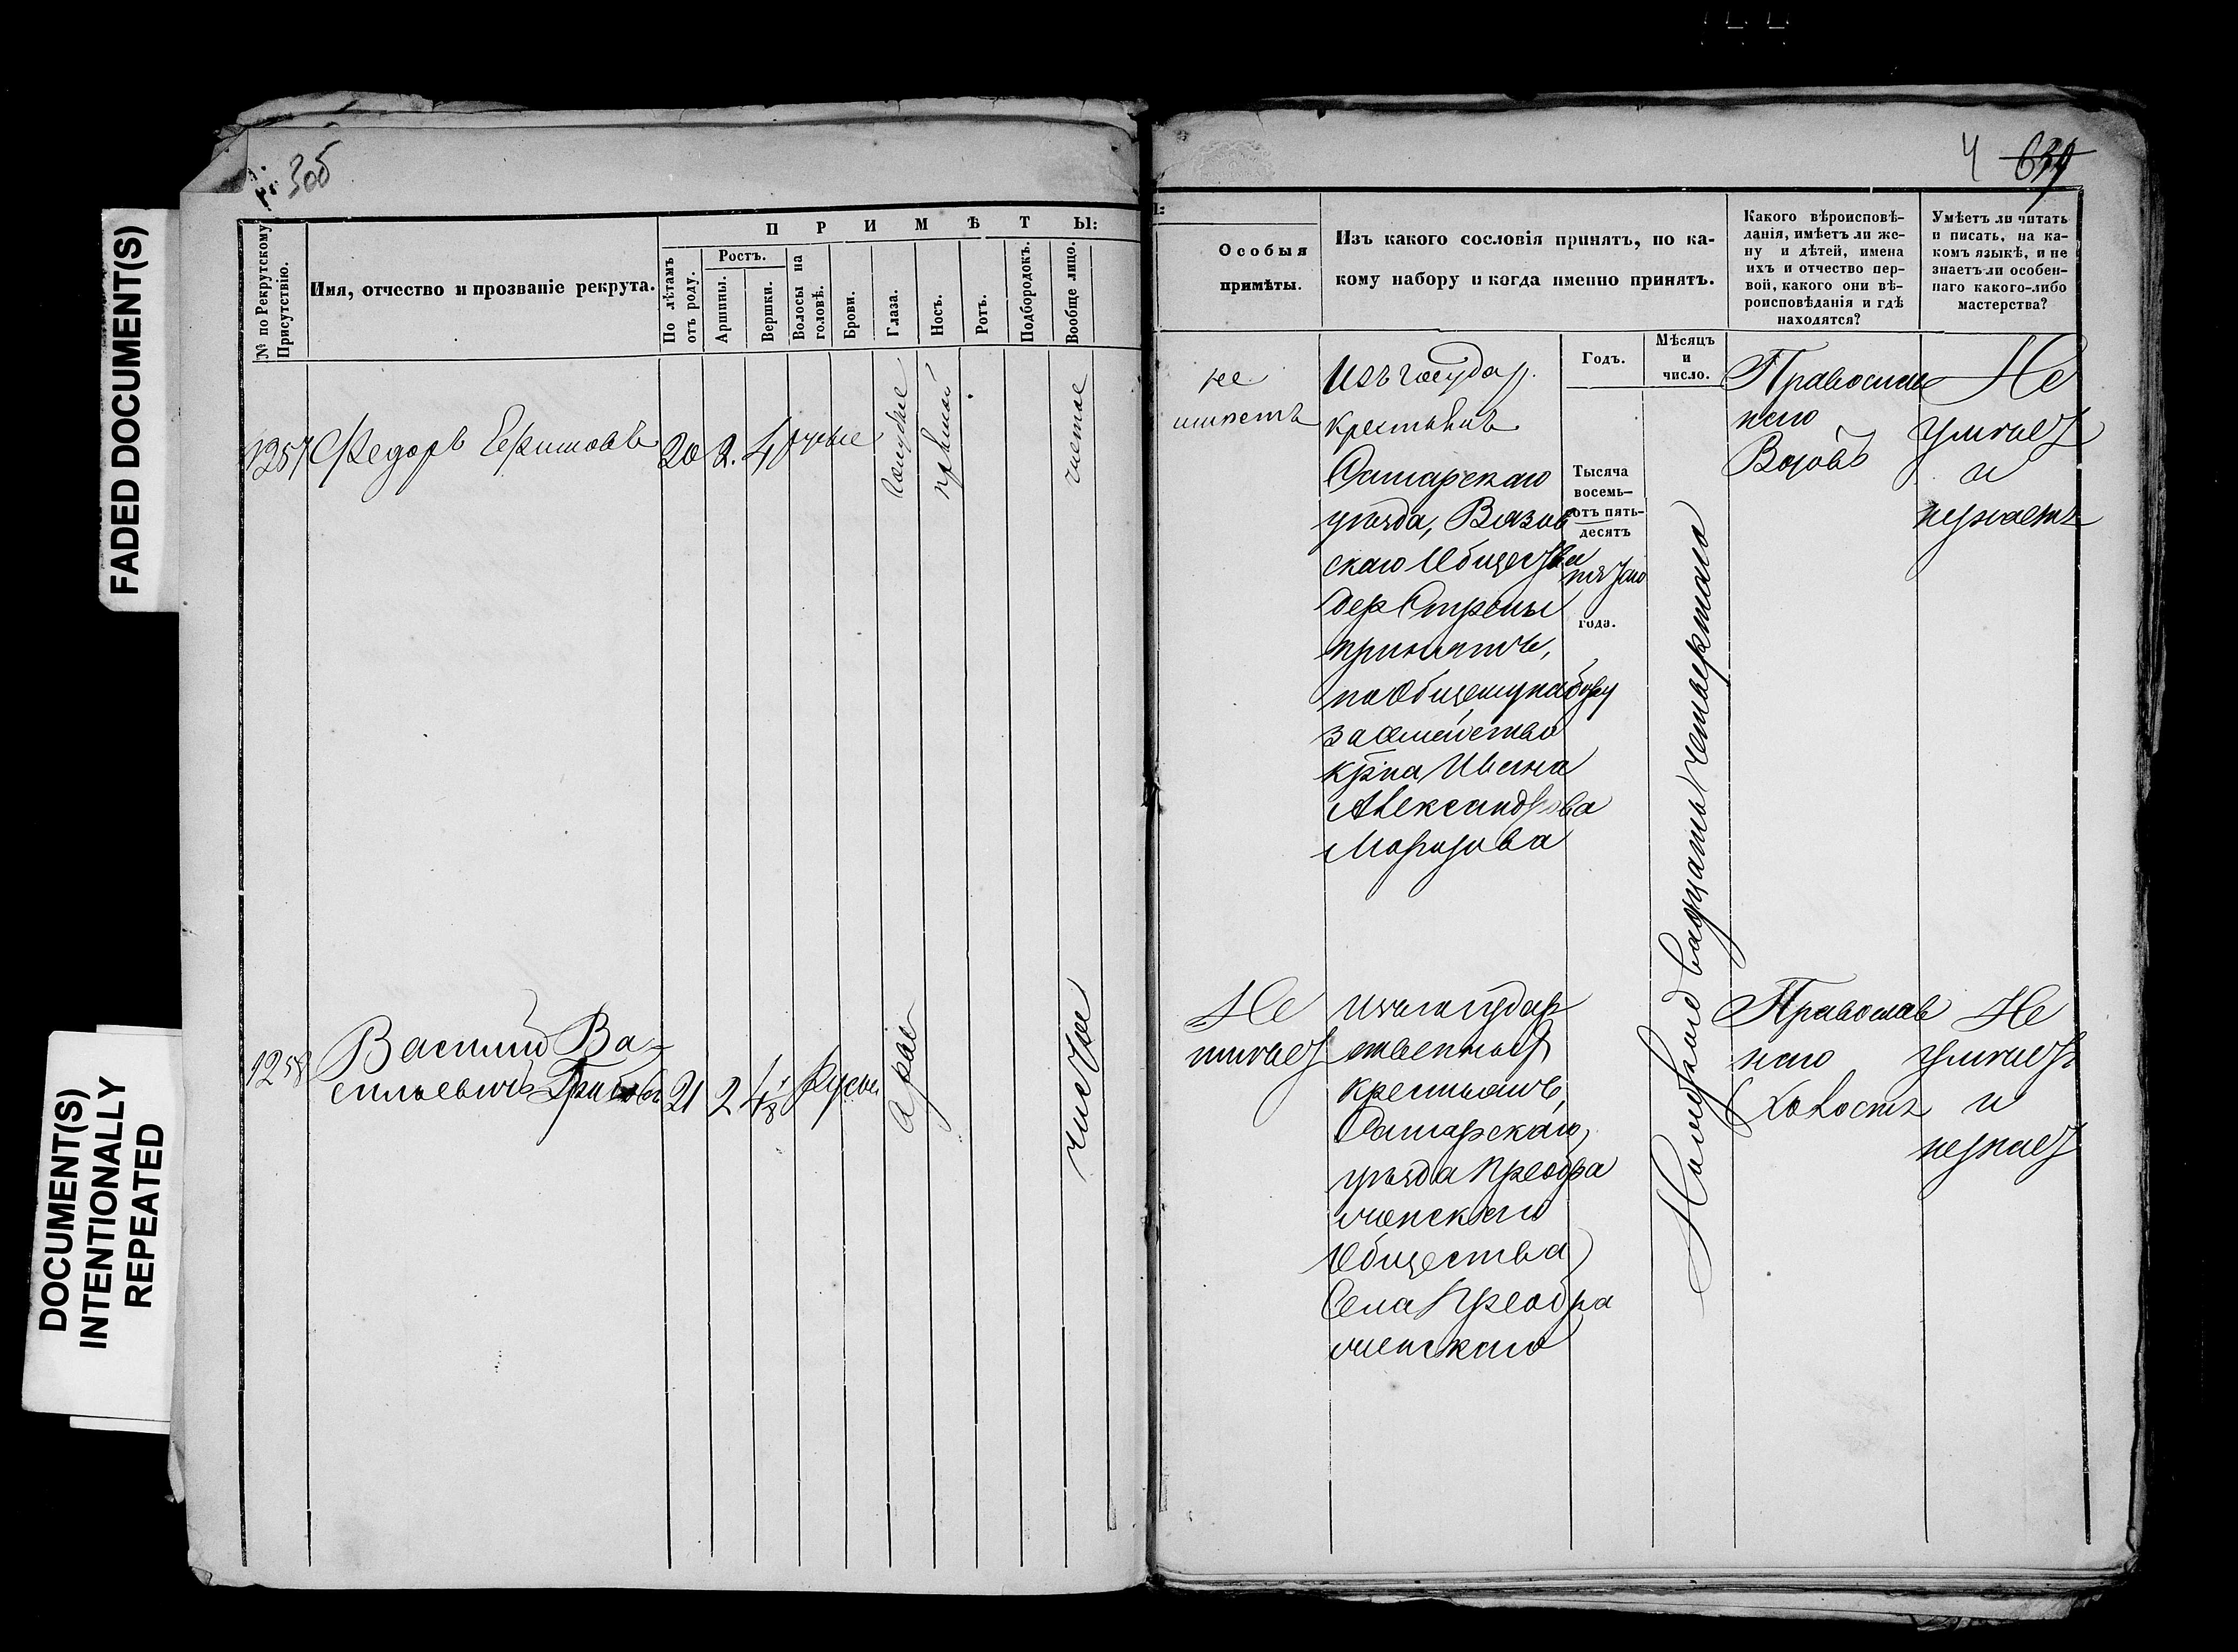 FADED DOCUMENT(S)
DOCUMENT(S)
INTENTIONALLY
REPEATED
3об
№ по Рекрутскому Присутствію.
Имя, отчество и прозваніе рекрута.
П Р И М Ѣ Т Ы:
По лѣтамъ отъ роду.
Ростъ.
Аршины.
Вершки.
Волосы на головѣ.
Брови.
Глаза.
Носъ.
Ротъ.
Подбородокъ.
Вообще лицо.
1257 Федоръ Ефимовъ 20 2. 4 русые голубые прямой чистое
1258 Василий Ва-
сильевичъ Грибовъ 21 2 4 1/8 Русые Карие чистое
4 639
Особыя
примѣты.
Изъ какого сословія принятъ, по ка-
кому набору и когда именно принятъ.
Какого вѣроисповѣ-
данія, имѣетъ ли же-
ну и дѣтей, имена
ихъ и отчество пер-
вой, какого они вѣ-
роисповѣданія и гдѣ
находятся?
Умѣетъ ли читать
и писать, на ка-
комъ языкѣ, и не
знаетъ ли особен-
наго какого-либо
мастерства?
Годъ.
Мѣсяцъ
и
число.
не
имѣетъ
Изъ государ.
крестьянъ
Самарскаго
уѣзда, Вязов
скаго Общества
дер
принятъ,
по Общему набору
за семейство
кр̅на Ивана
Александрова
Морозова
Тысяча
восемь-
сотъ пять-
десятъ
пятаго
года.
Ноября двадцать четвертаго
Православ
наго
Вдовъ
Не
умѣет
и
незнаетъ
Не
имѣет
Изъ государ
ственных
крестьянъ,
Самарскаго,
уѣзда Преобра
женскаго
Общества
Села Преобра
женскаго
Православ
наго
Холостъ
Не
умѣетъ
и
незнает